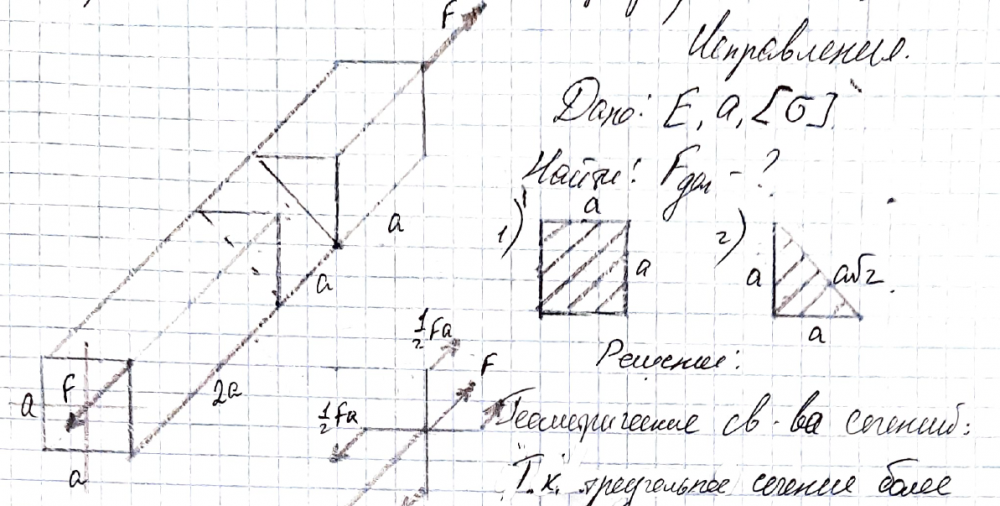 F
Исправления.
Дано: E, a, [σ]
Найти: Fдоп - ?
1)
a
a
2)
a
a√2
a
a
a
2a
a
F
a
1/2 Fa
F
1/2 Fa
Решение:
Геометрические св-ва сечений:
Т.к. треугольное сечение более